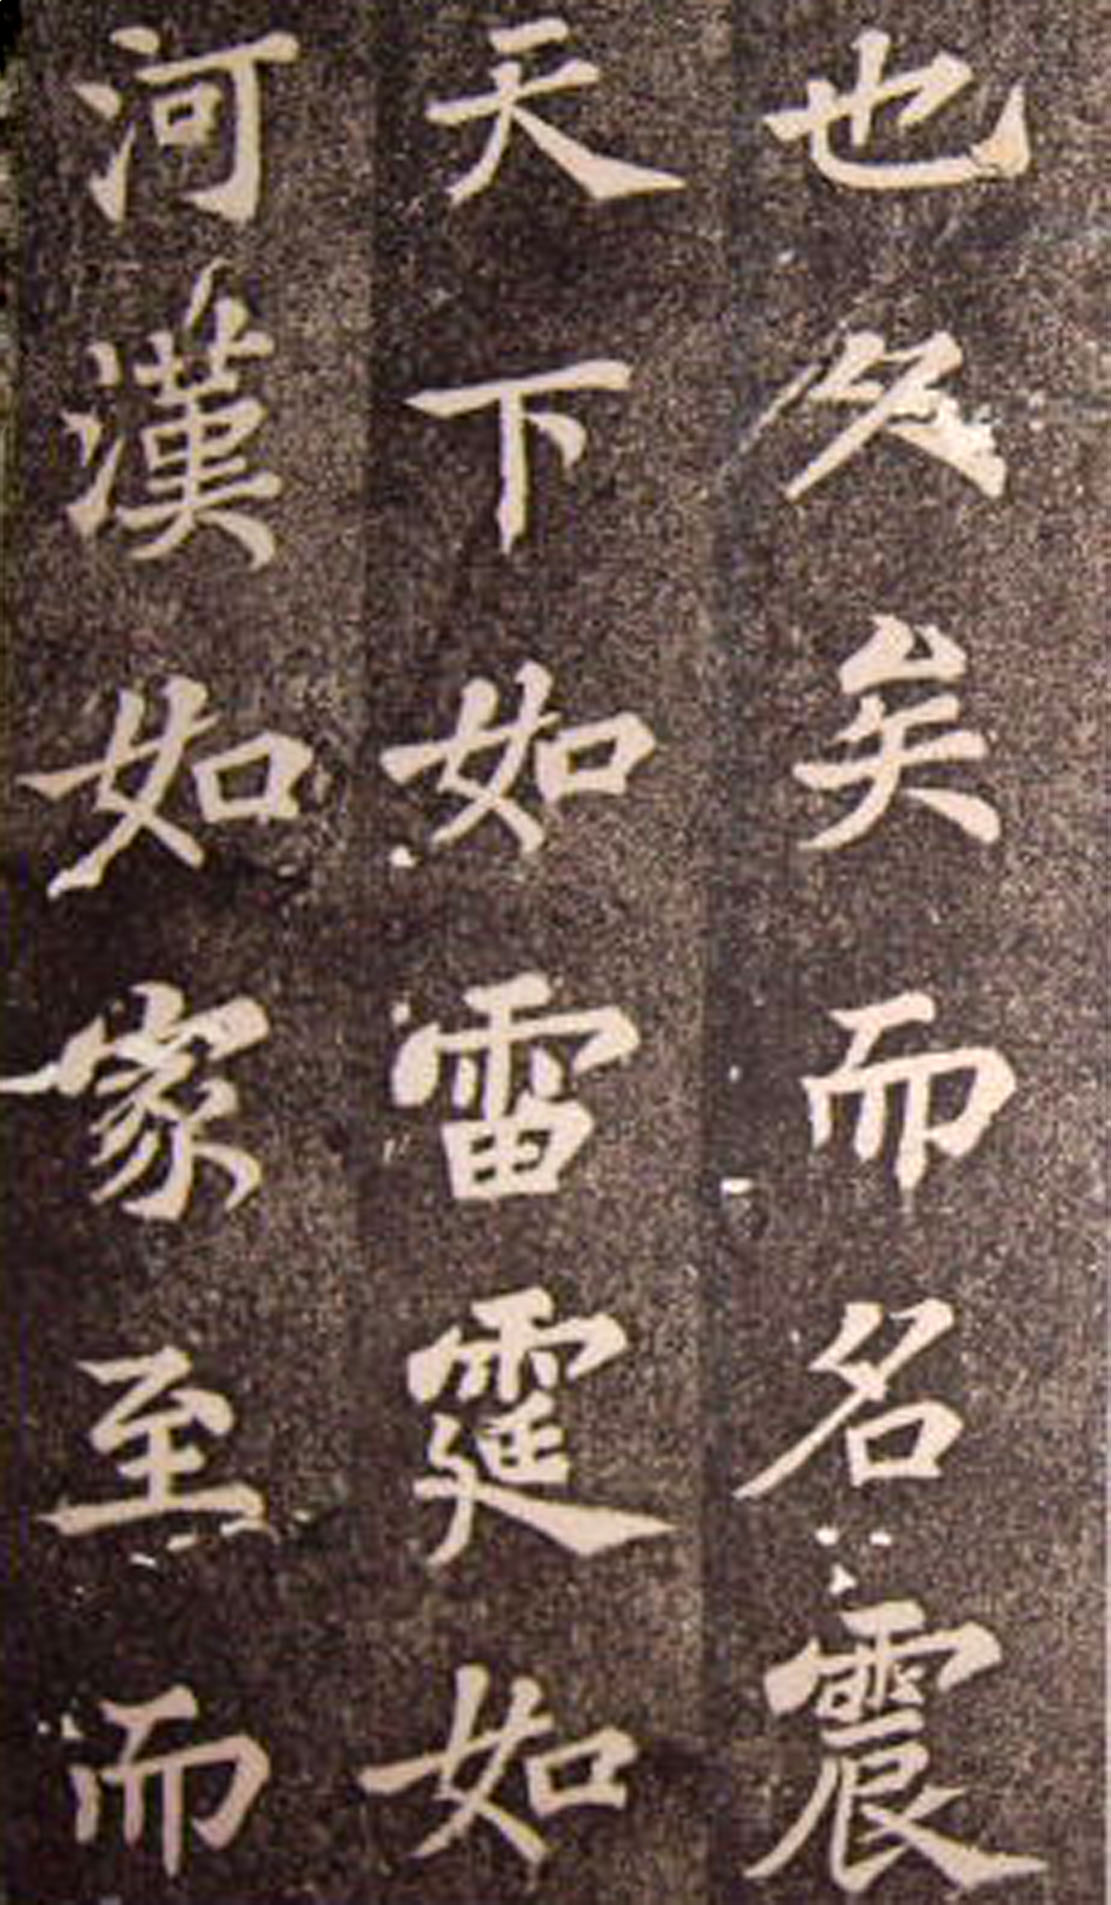 也久矣而名震
天下如雷霆如
河漢如家至而